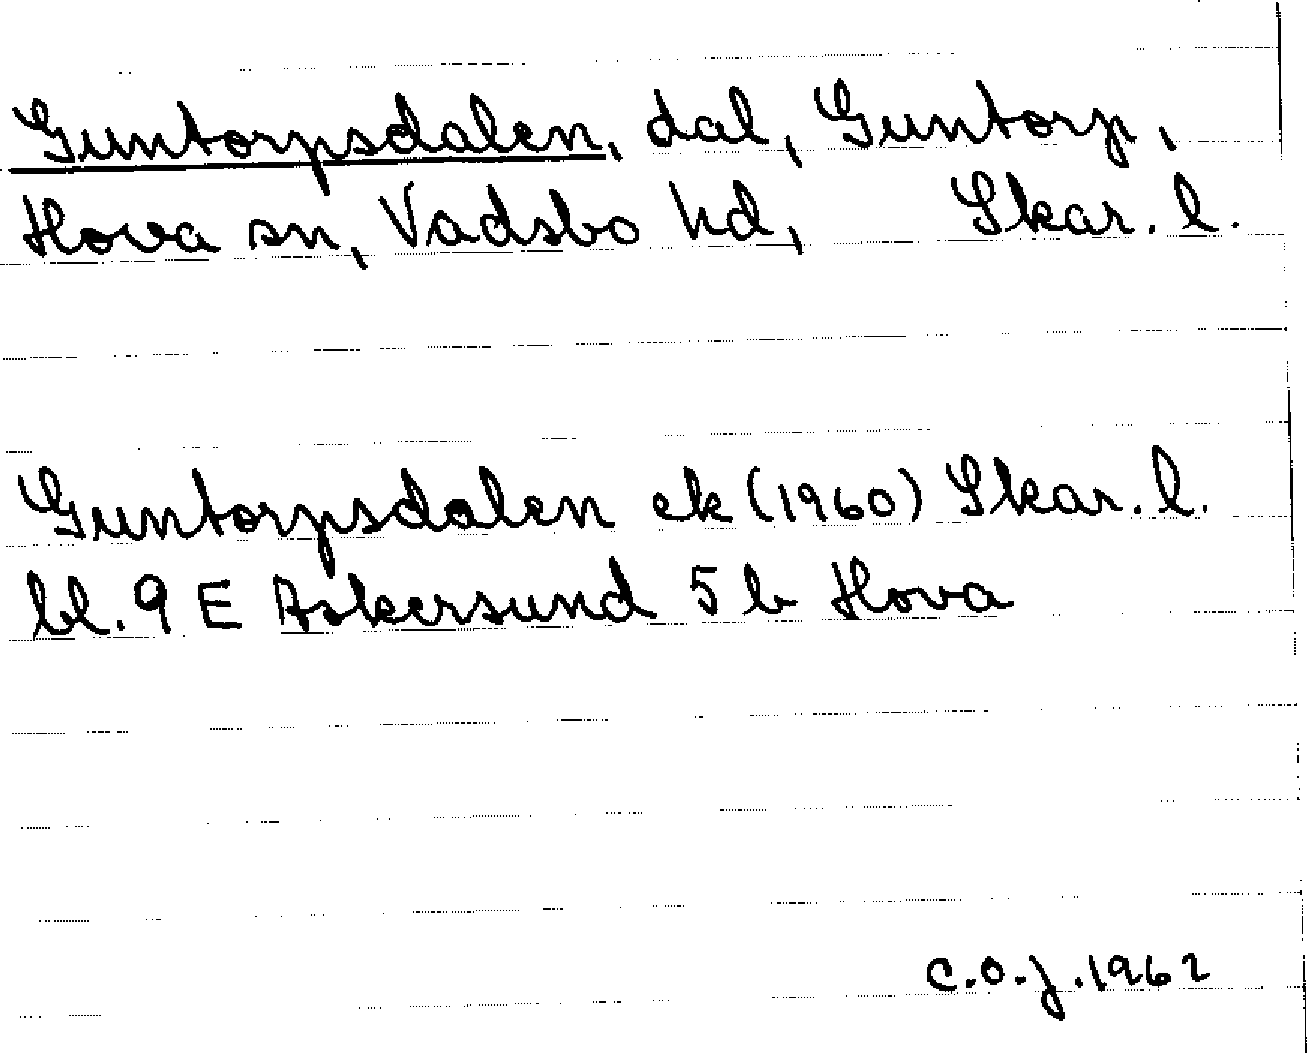 Guntorpsdalen, dal, Guntorp,
Hova sn, Vadsbo hd, Skar. l.
Guntorpsdalen ek (1960) Skar. l.
bl. 9 E Askersund 5 b Hova
C.O.J. 1962